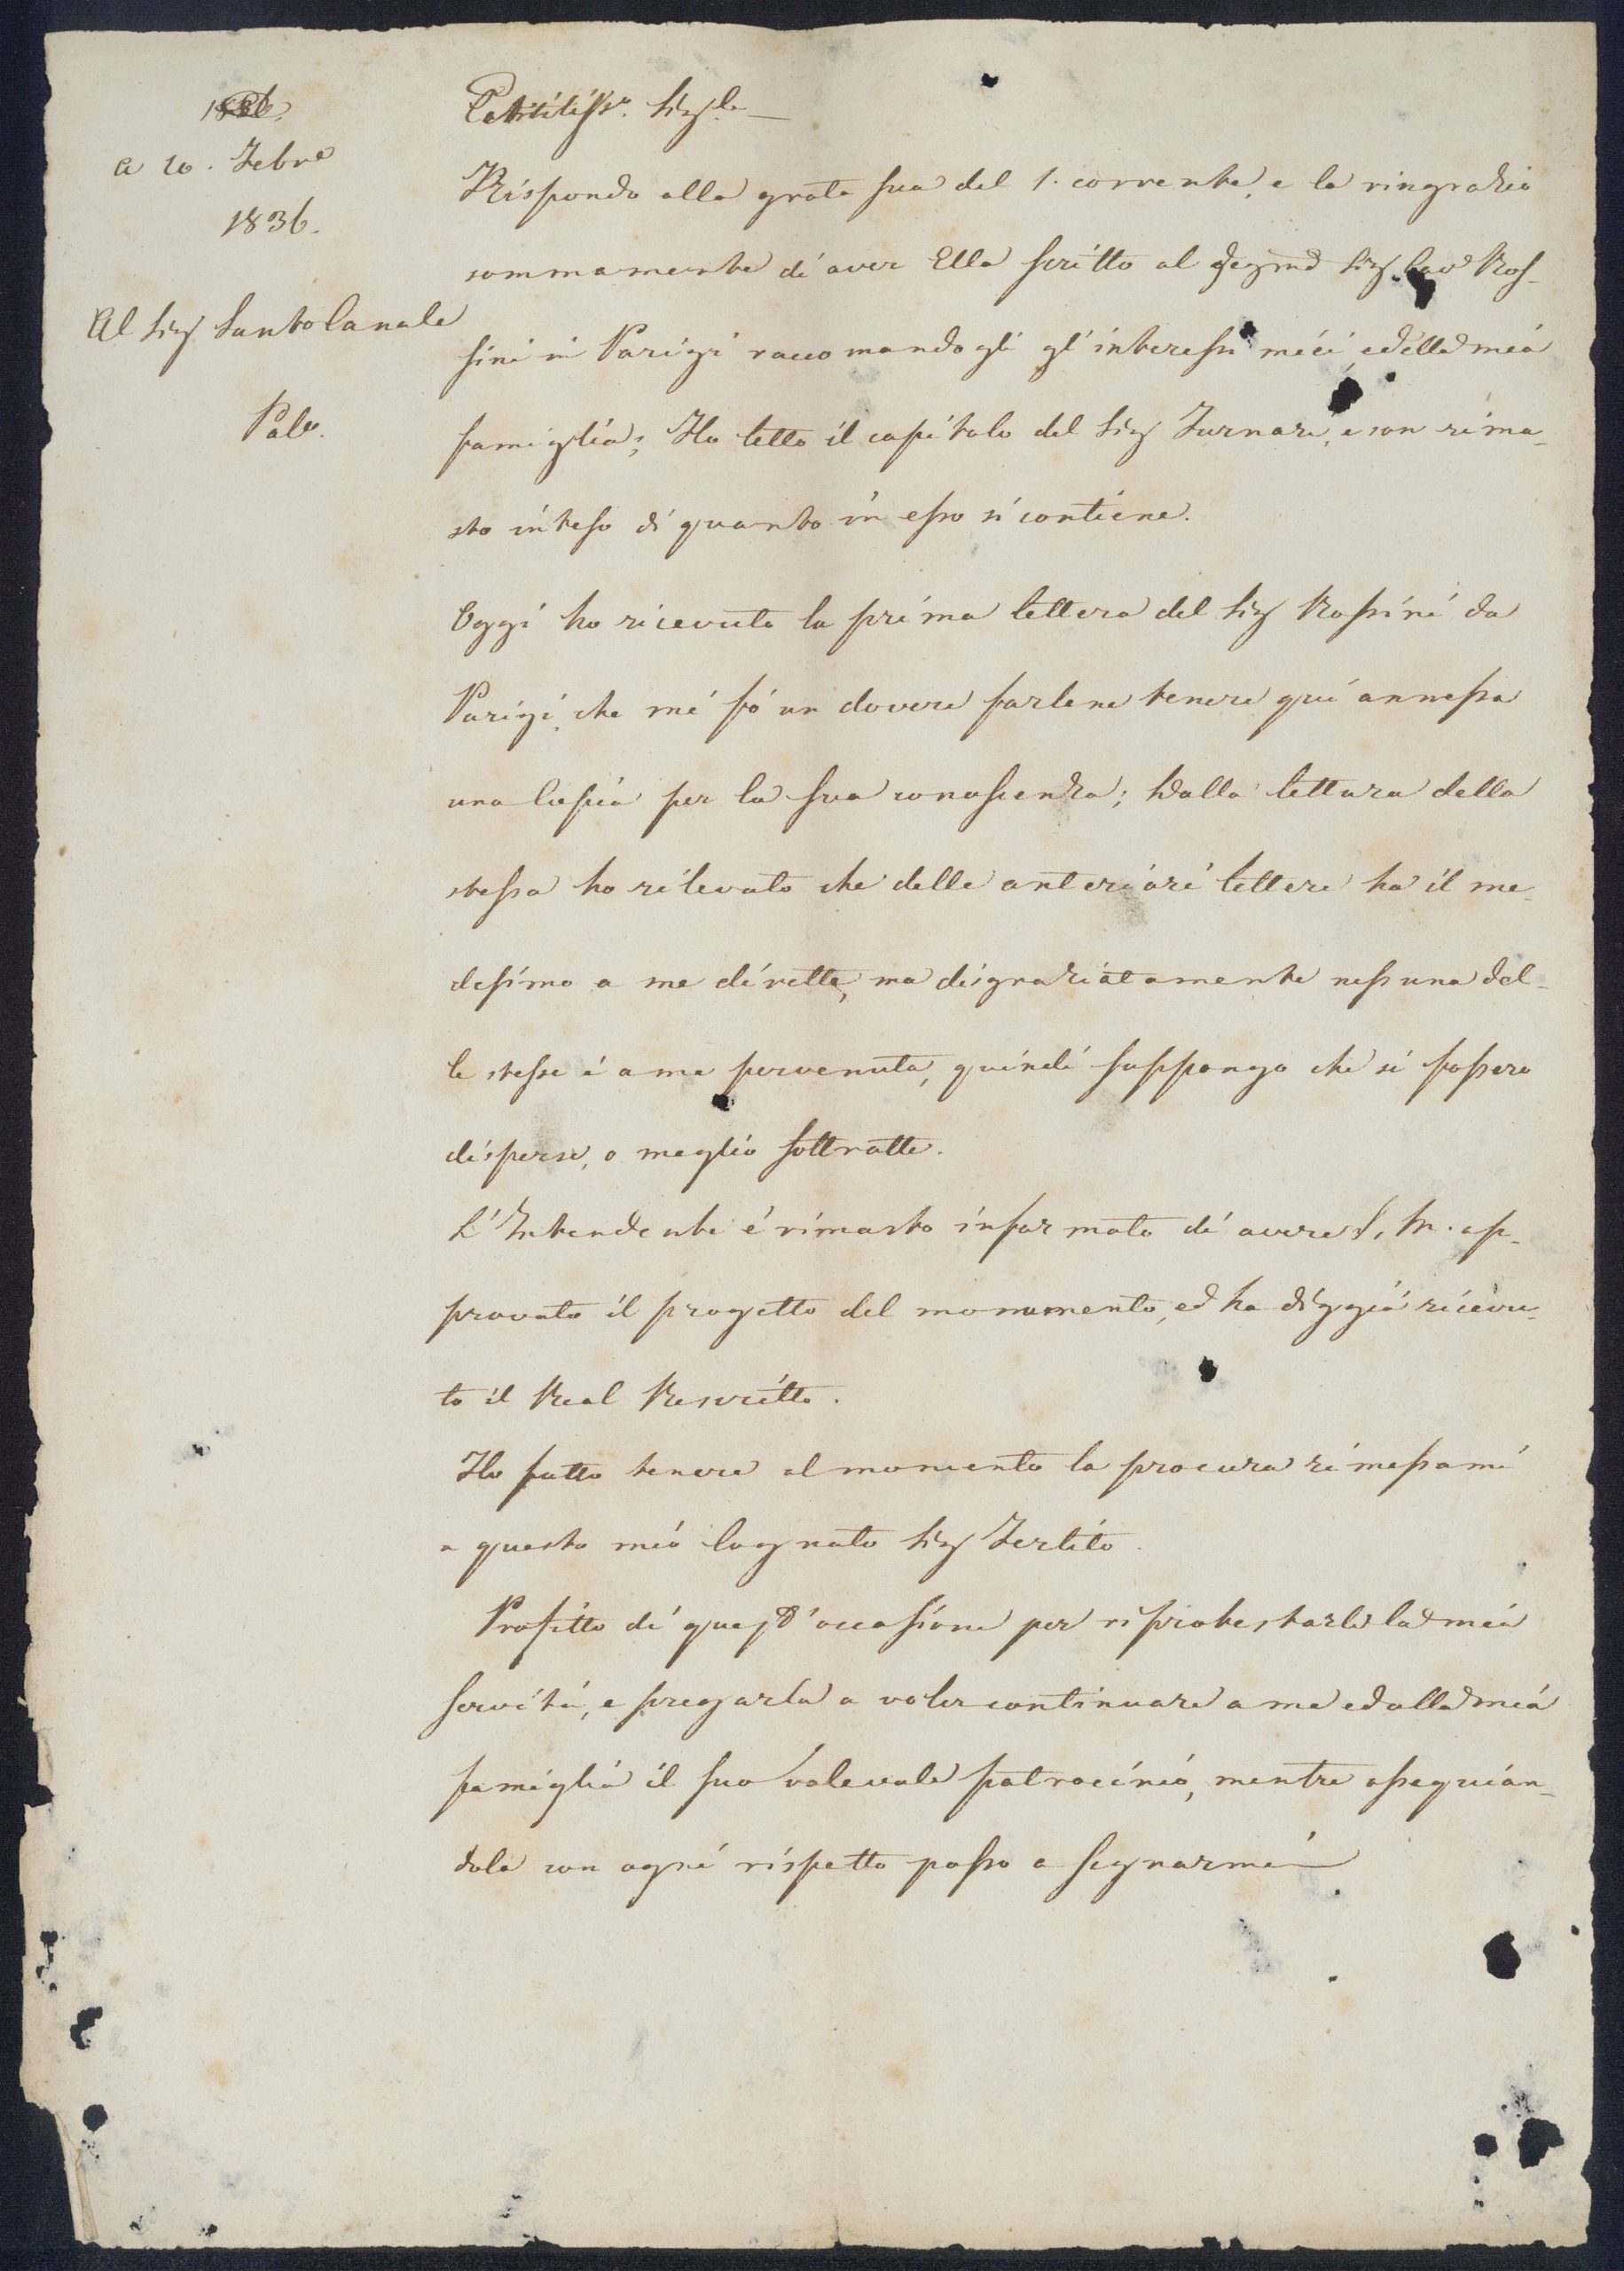 a 10. Febro
1836.
Al Sig Santocanale
Pal.
Gentiliss.o Sig.le
Rispondo alla grata sua del 1. corrente, e la ringrazio
sommamente di aver Ella scritto al degmo Sig Cavo Ros-
sini in Parigi raccomandogli gl'interessi miei, e della mia
famiglia; Ho letto il capitolo del Sig Furnari, e son rima-
sto inteso di quanto in esso si contiene.
Oggi ho ricevuto la prima lettera del Sig Rossini da
Parigi, che mi fò un dovere farlene tenere quì annessa
una Copia per la sua conoscenza; Dalla lettura della
stessa ho rilevato che delle anteriori lettere ha il me-
desimo a me dirette, ma disgraziatamente nessuna del-
le stesse è a me pervenuta, quindi suppongo che si fossero
disperse, o meglio sottratte.
L'Intendente è rimasto informato di avere S. M. ap-
provato il progetto del monumento, ed ha diggià ricevu-
to il Real Rescritto.
Ho fatto tenere al momento la procura rimessami
a questo mio Cognato Sig Fertito.
Profitto di quest'occasione per riprotestarle la mia
servitù, e pregarla a voler continuare a me ed alla mia
famiglia il suo valevole patrocinio, mentre ossequian-
dola con ogni rispetto passo a segnarmi